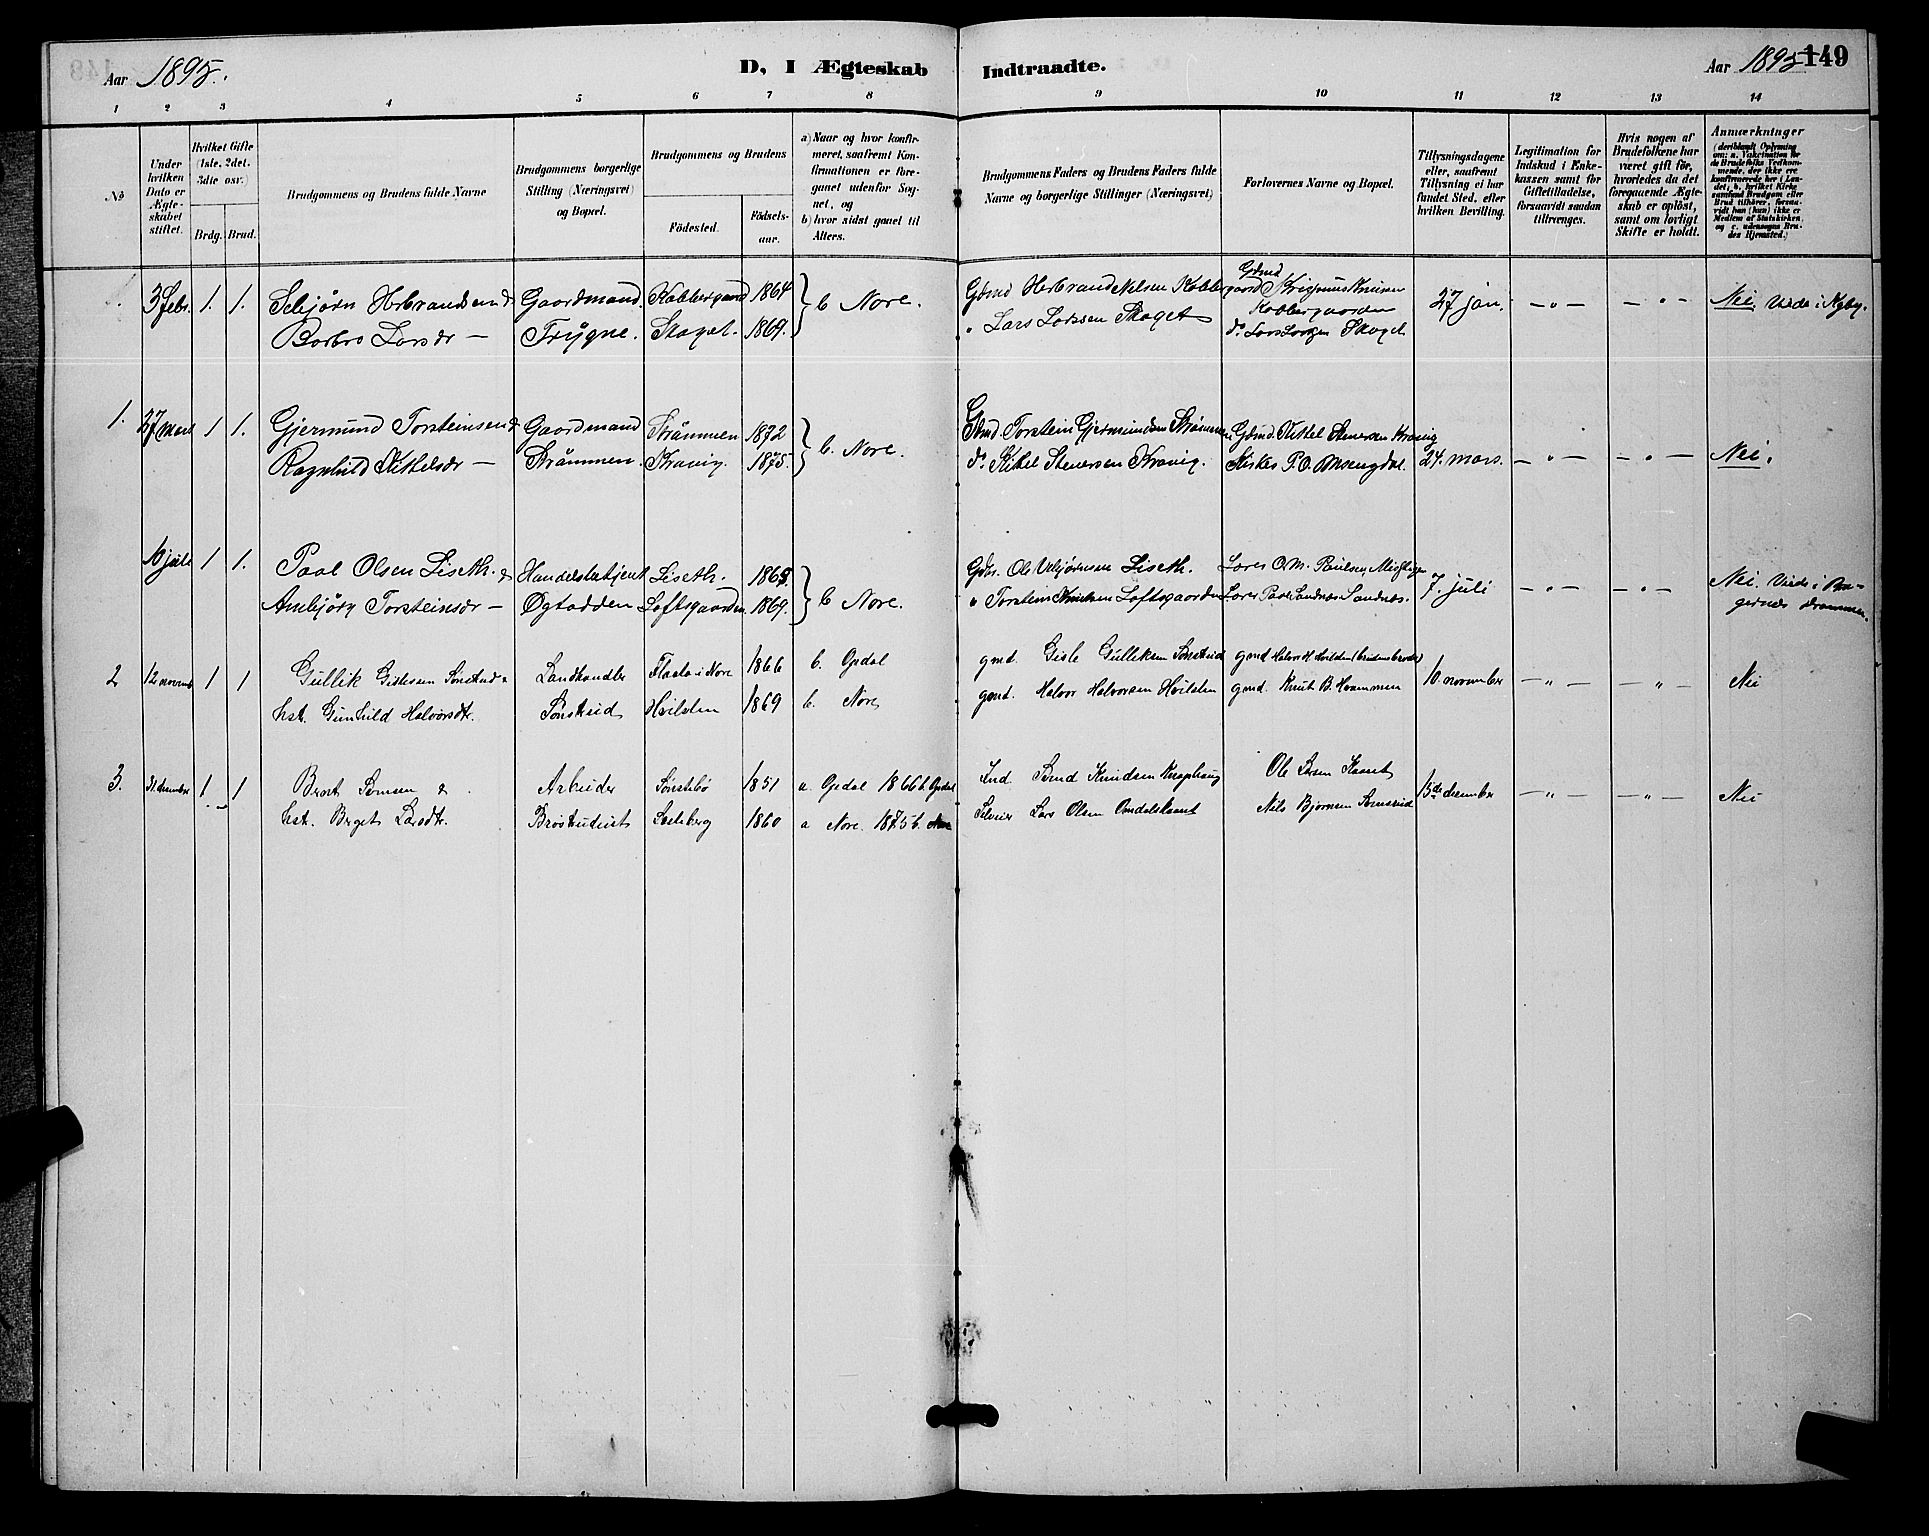 Aar 1895.
D, I Ægteskab Indtraadte.
Aar 1895 149
1 2 3 4 5 6 7 8 9 10 11 12 13 14
No
Under hvilken Dato er Ægteskabet stiftet.
Hvilket Gifte (1ste, 2det, 3die osv.)
Brdg. Brud.
Brudgommens og Brudens fulde Navne
Brudgommens borgerlige Stilling (Næringsvei) og Bopæl.
Brudgommens og Brudens
Födested. Födselsaar.
a) Naar og hvor konfirmeret, saafremt Konfirmationen er foregaaet udenfor Sognet, og
b) hvor sidst gaaet til Alters.
Brudgommens Faders og Brudens Faders fulde Navne og borgerlige Stillinger (Næringsvei)
Forlovernes Navne og Bopæl.
Tillysningsdagene eller, saafremt Tillysning ei har fundet Sted, efter hvilken Bevilling.
Legitimation for Indskud i Enkekassen samt for Giftetilladelse, forsaavidt saadan tiltrænges.
Hvis nogen af Brudefolkene har været gift før, hvorledes da det foregaaende Ægteskab er opløst, samt om lovligt Skifte er holdt.
Anmærkninger (deriblandt Oplysning om: a. Vakcination for de Brudefolks Vedkommende, der ikke ere konfirmerede her i Landet; b. hvilket Kirkesamfund Brudgom eller Brud tilhører, forsaavidt han (hun) ikke er Medlem af Statskirken, og c. udensogns Brudes Hjemsted.)
3 Febr. 1. 1. Sebjörn Herbrandsen & Gaardmand Kobbergaard 1864 b Nore. Gdmd Herbrand Nelsen Kobbergaard Gdmd Knudsen 27 jan. — " — — " — Nei. Viede i
Barbro Larsdr — Frygne. Skaget. 1869. " Lars Larssen Skaget Kobbergaarden
do Lars Larssen Skaget
1. 27 Mars 1 1. Gjermund Torsteinsen & Gaardmand Strømmen 1872 b. Nore. Gdmd. Torstein Gjermundsen Strømmen Gdmd. Kittel Stenersen Kravig 24. mars. — " — — " — Nei.
Ragnhild Kittelsdr — Strømmen. Kravig. 1875. do Kittel Stenersen Kravig. P. O.
10 juli 1 1. Paal Olsen Liseth. & Handelsbetjent Liseth. 1865. b Nore. Gdbr. Ole Liseth. Lærer O. M. Paulsen, 7. juli — " — — " — Nei. Viede i Bragernæs Drammen.
Ambjörg Torsteinsdr — Øgtadden Loftsgaarden 1869. " Torstein Knudsen Loftsgaarden Lærer Paal Sandnæs Sandnæs.
2 12 novemb 1 1 Gullik Gislesen Sønstrud & Landhandler Flaata i Nore 1866 b. Opdal gmd. Gisle Gulliksen Sønstrud gmd Halvor H. Hvilsten (brudens broder) 10. november — " — — " — Nei
hst. Gunhild Halvorsdtr. Sønstrud Hvilsten 1869 b. Nore gmd. Halvor Halvorsen Hvilsten gmd. Knut B. Hvammen
3. 31 december 1 1 Bernt Sørnsen & Arbeider Sønstebø 1851 a. Opdal 1866 b. Opdal Ind. Knudsen Knaphaug Ole 15de december — " — — " — Nei
hst. Berget Larsdtr. 1860 a Nore. 1875 b. Nore Selveier Lars Olsen Nils Bjørnsen Sønsrud